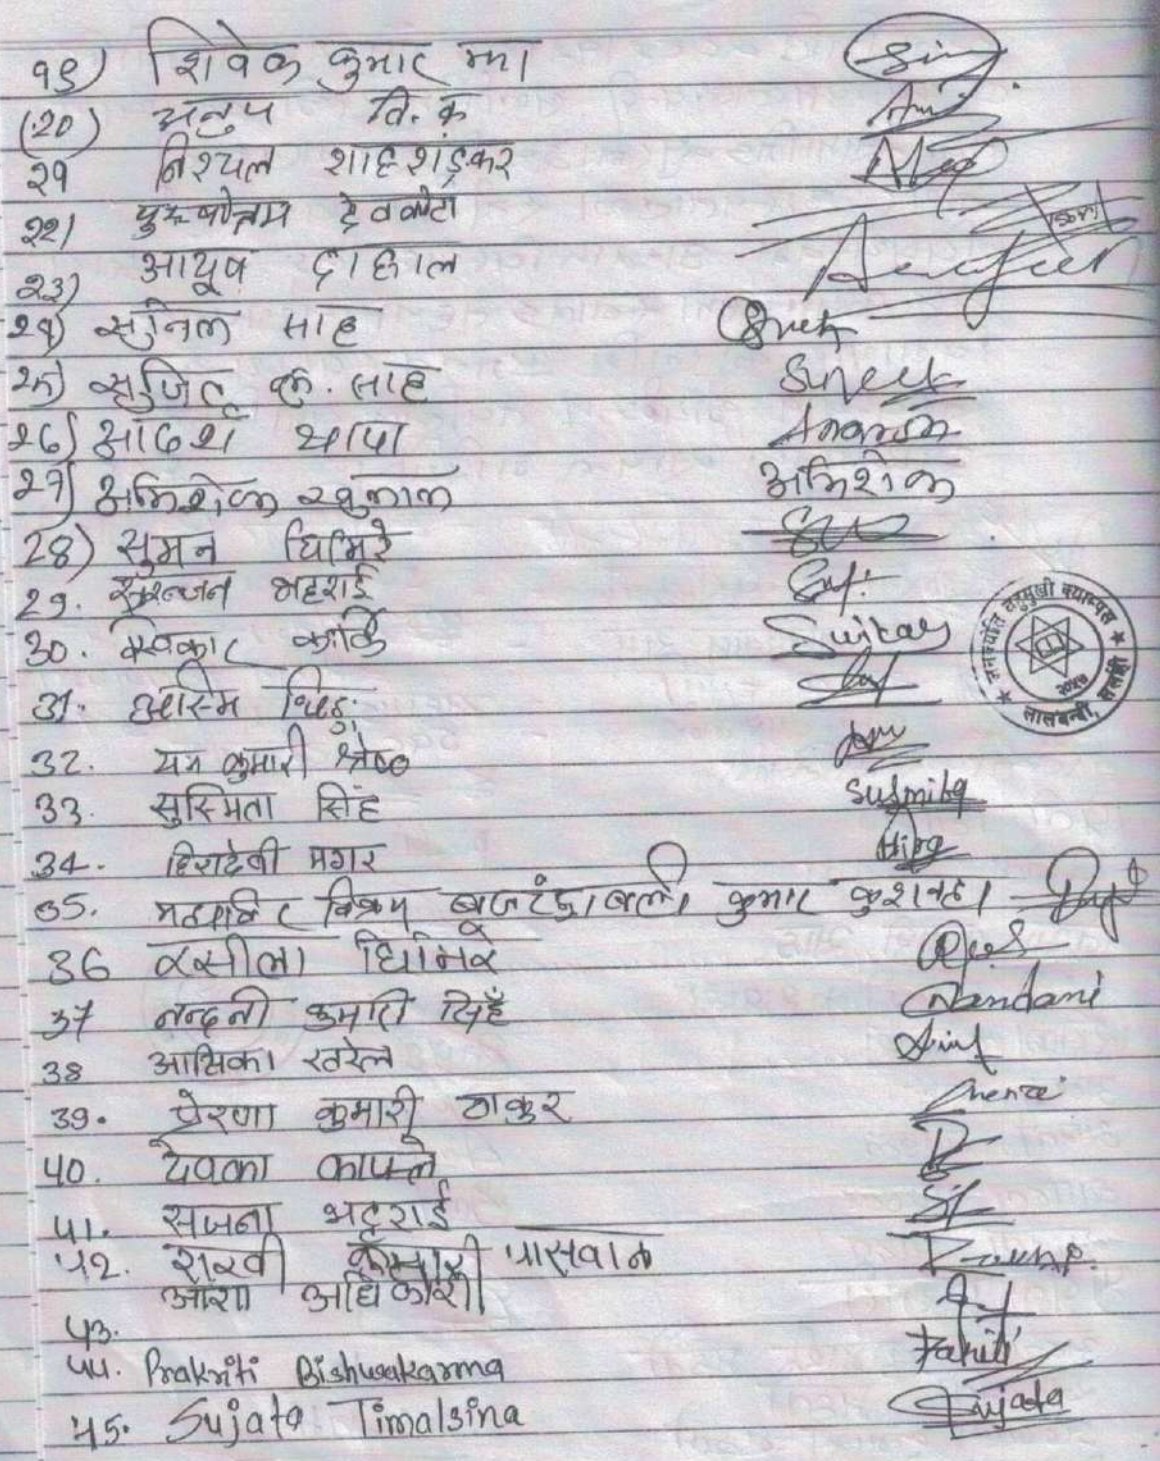 १९) शिवेक कुमार झा
(20) अनुप वि. क
२१ निश्चल शाहशङ्कर
२२) पुरूषोत्तम देवकोटा
२३) आयूष दाहाल
२४) सुनिल साह
२५) सुजित कु. साह Sujeet
२६) आदेश थापा
२७) अभिशेक खुलाल अभिशेक
28) सुमन घिमिरे
29. सुरन्जन भट्टराई
30. स्विकार कार्की Swikar
31. आस्मि थिङ
32. यम कुमारी श्रेष्ठ
33. सुस्मिता सिंह Susmita
34. हिरादेवी मगर Hira
35. महावीर विक्रम बजरंङ्गबली कुमार कुशवाहा
36 रसीला घिमिरे
37 नन्दनी कुमारी सिहँ Nandani
38 आसिका खरेल
39. प्रेरणा कुमारी ठाकुर
40. देवका काफ्ले
41. सजना भट्टराई
42. राखी कुमारी पासवान
43. आशा अधिकारी
44. Prakriti Bishwakarma
45. Sujata Timalsina Sujata
जनज्योति बहुमुखी क्याम्पस
२०४७
लालबन्दी, सर्लाही